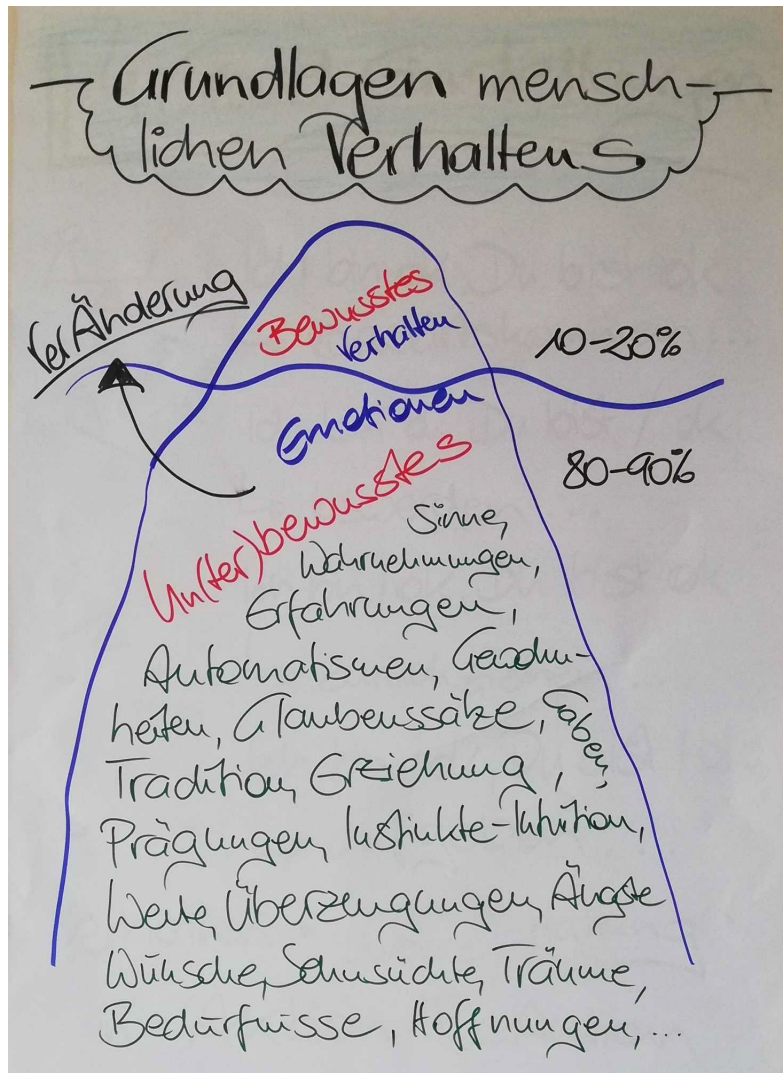 Grundlagen mensch-
lichen Verhaltens
VerÄnderung
Bewusstes
Verhalten
10-20%
Emotionen
80-90%
Un(ter)bewusstes
Sinne,
Wahrnehmungen,
Erfahrungen,
Automatismen, Gewohn-
heiten, Glaubenssätze, Gaben,
Tradition, Erziehung,
Prägungen, Instinkte-Intuition,
Werte, Überzeugungen, Ängste
Wünsche, Sehnsüchte, Träume,
Bedürfnisse, Hoffnungen,...